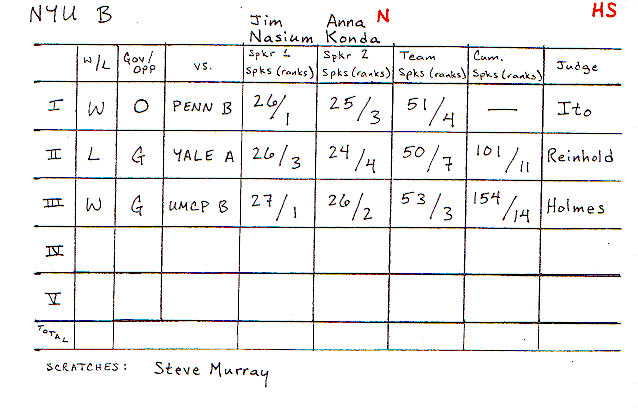 NYU B Jim Nasium Anna Konda N HS
W/L Gov/OPP vs. Spkr 1 Spks (ranks) Spkr 2 Spks (ranks) Team Spks (ranks) Cum. Spks (ranks) Judge
I W O PENN B 26/1 25/3 51/4 — Ito
II L G YALE A 26/3 24/4 50/7 101/11 Reinhold
III W G UMCP B 27/1 26/2 53/3 154/14 Holmes
IV
V
TOTAL
SCRATCHES: Steve Murray